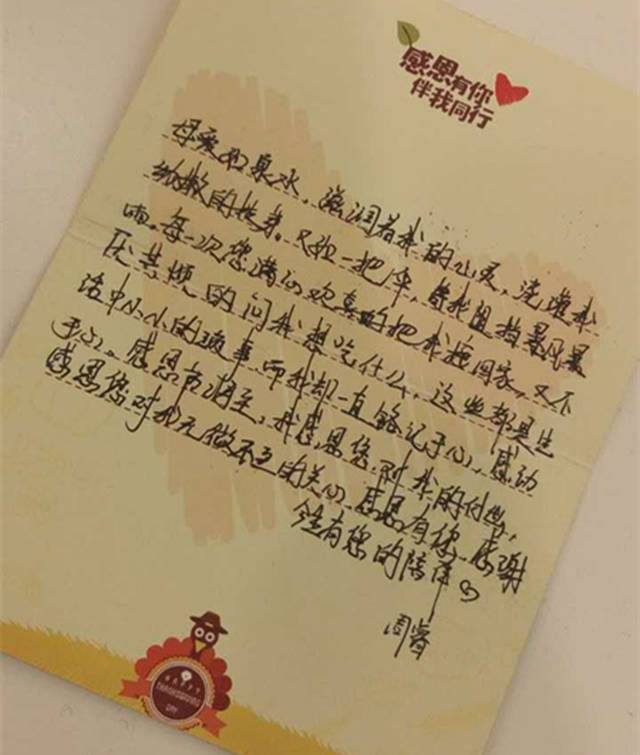 感恩有你
伴我同行
母爱如泉水，滋润着我的心灵，浇灌我
幼嫩的枝芽。又如一把伞，替我阻挡暴风暴
雨。每一次您满心欢喜的把我接回家，又不
厌其烦的问我想吃什么，这些都是生
活中小小的琐事而我却一直铭记于心，感动
于心。感恩节将至，我感恩您对我的付出，
感恩您对我无微不至的关心，感恩有您，感谢
今生有您的陪伴
周睿
HAPPY
THANKSGIVING
DAY